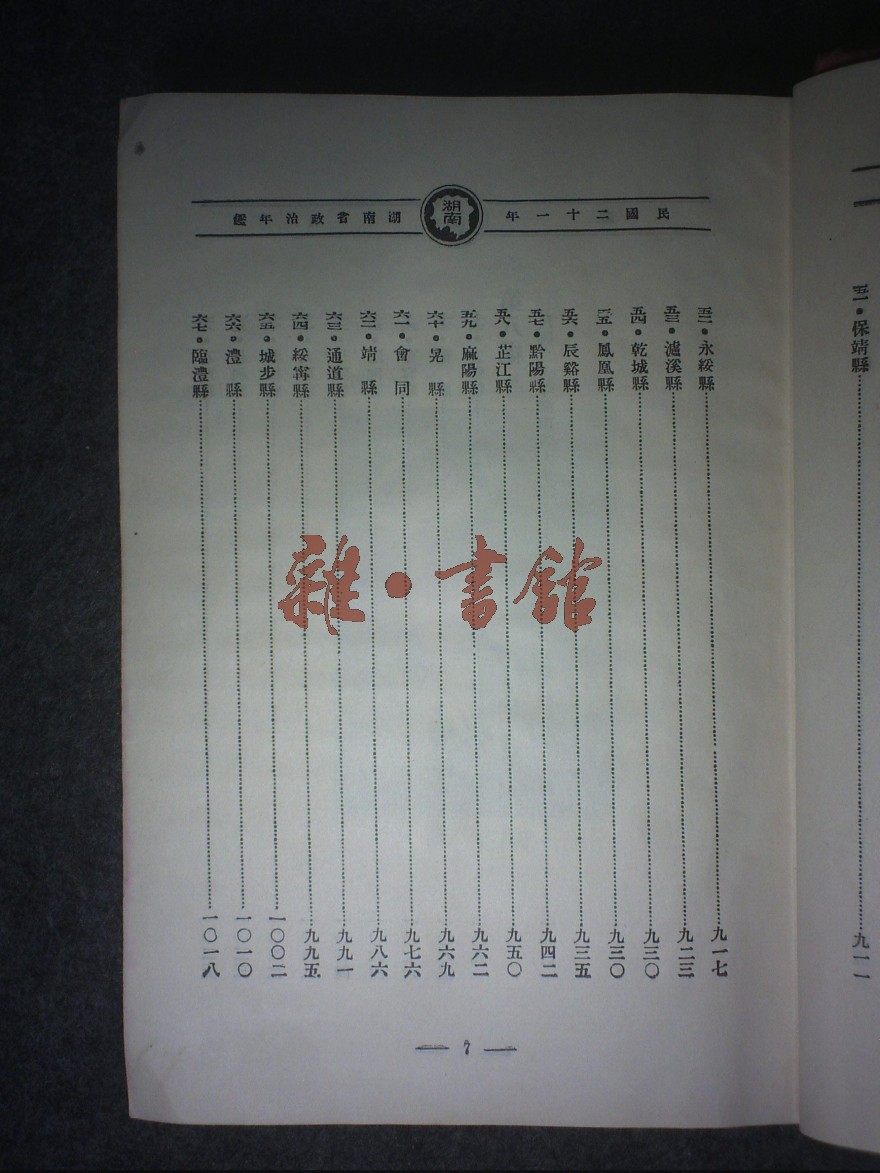 民國二十一年
湖南
湖南省政治年鑑
五一•保靖縣……九一一
五二•永綏縣……九一七
五三•瀘溪縣……九二三
五四•乾城縣……九三〇
五五•鳳凰縣……九三〇
五六•辰谿縣……九三五
五七•黔陽縣……九四二
五八•芷江縣……九五〇
五九•麻陽縣……九六二
六十•晃縣……九六九
六一•會同……九七六
六二•靖縣……九八六
六三•通道縣……九九一
六四•綏寧縣……九九五
六五•城步縣……一〇〇二
六六•澧縣……一〇一〇
六七•臨澧縣……一〇一八
雜•書館
— 7 —